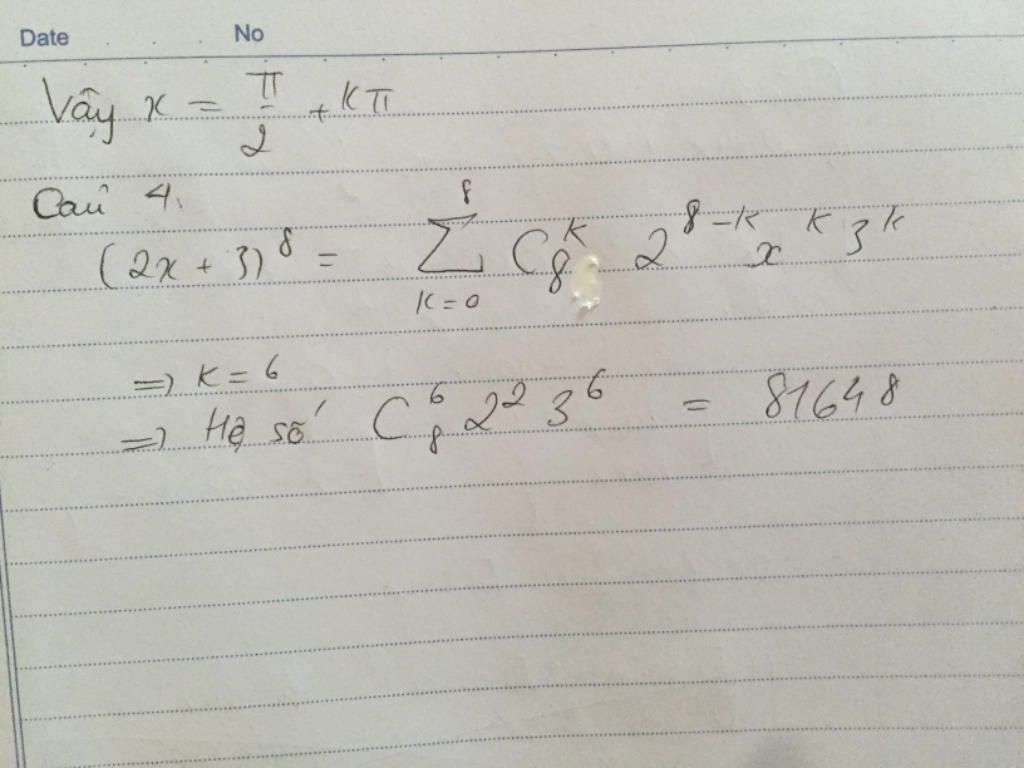 Date . . . No
Vậy x = π/2 + kπ
Caû 4.
(2x + 3)^8 = ∑_{k=0}^{8} C_8^k 2^{8-k} x^k 3^k
=> k = 6
=> Hệ số C_8^6 2^2 3^6 = 81648